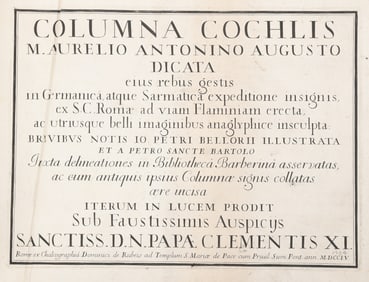 COLUMNA COCHLIS
M. AURELIO ANTONINO AUGUSTO
DICATA
eius rebus gestis
in Germanica, atque Sarmatica expeditione insignis,
ex S.C. Romæ ad viam Flaminiam erecta,
ac utriusque belli imaginibus anaglyphice insculpta:
BREVIBVS NOTIS IO PETRI BELLORII ILLVSTRATA
ET A PETRO SANCTE BARTOLO
Iuxta delineationes in Bibliothecâ Barberinâ asservatas,
ac cum antiquis ipsius Columnæ signis collatas
ære incisa
ITERUM IN LUCEM PRODIT
Sub Faustissimis Auspicijs
SANCTISS. D.N. PAPÆ CLEMENTIS XI.
Romæ ex Chalcographia Dominici de Rubeis ad Templum S. Mariæ de Pace cum Privil. Sum. Pont. ann. MDCCIV.